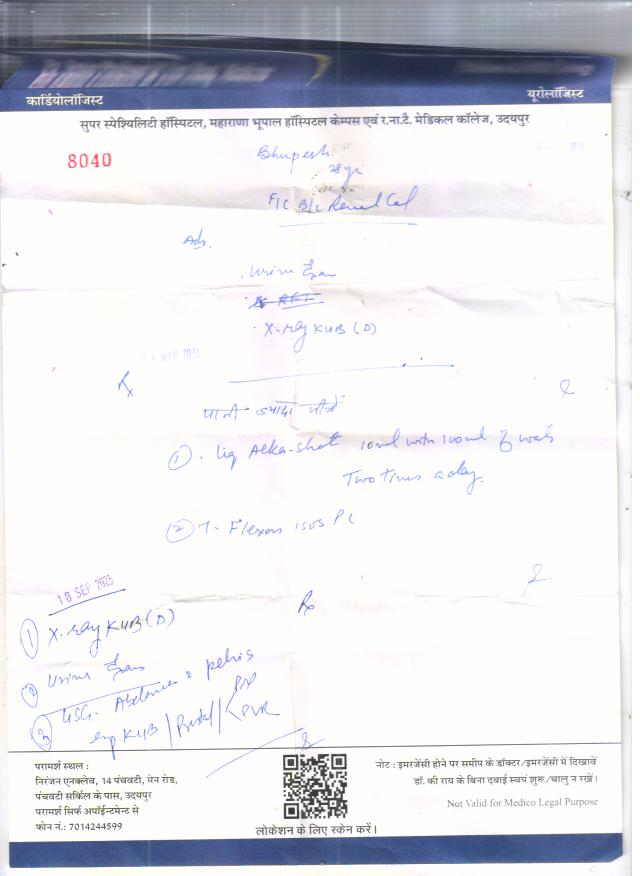 कार्डियोलॉजिस्ट
यूरोलॉजिस्ट
सुपर स्पेश्यिलिटी हॉस्पिटल, महाराणा भूपाल हॉस्पिटल केम्पस एवं र.ना.टै. मेडिकल कॉलेज, उदयपुर
8040
Bhupesh
28yr
F/C B/L Renal Cal
Adv.
Urine Exam
RFT
X-ray KUB (D)
MAR 2024
Rx
पानी ज्यादा पीवें
① . Liq Alka-shot 10ml with 100ml of water
Two times a day.
② T- Flexon 1SOS
18 SEP 2025
Rx
① X-ray KUB (D)
② Urine Exam
③ USG. Abdomen & pelvis
KUB / Prostate / PVR
परामर्श स्थल :
निरंजन एनक्लेव, 14 पंचवटी, मेन रोड,
पंचवटी सर्किल के पास, उदयपुर
परामर्श सिर्फ अपॉईन्टमेन्ट से
फोन नं.: 7014244599
लोकेशन के लिए स्केन करें।
नोट : इमरजेंसी होने पर समीप के डॉक्टर/इमरजेंसी में दिखावें
डॉ. की राय के बिना दवाई स्वयं शुरू/चालु न रखें।
Not Valid for Medico Legal Purpose